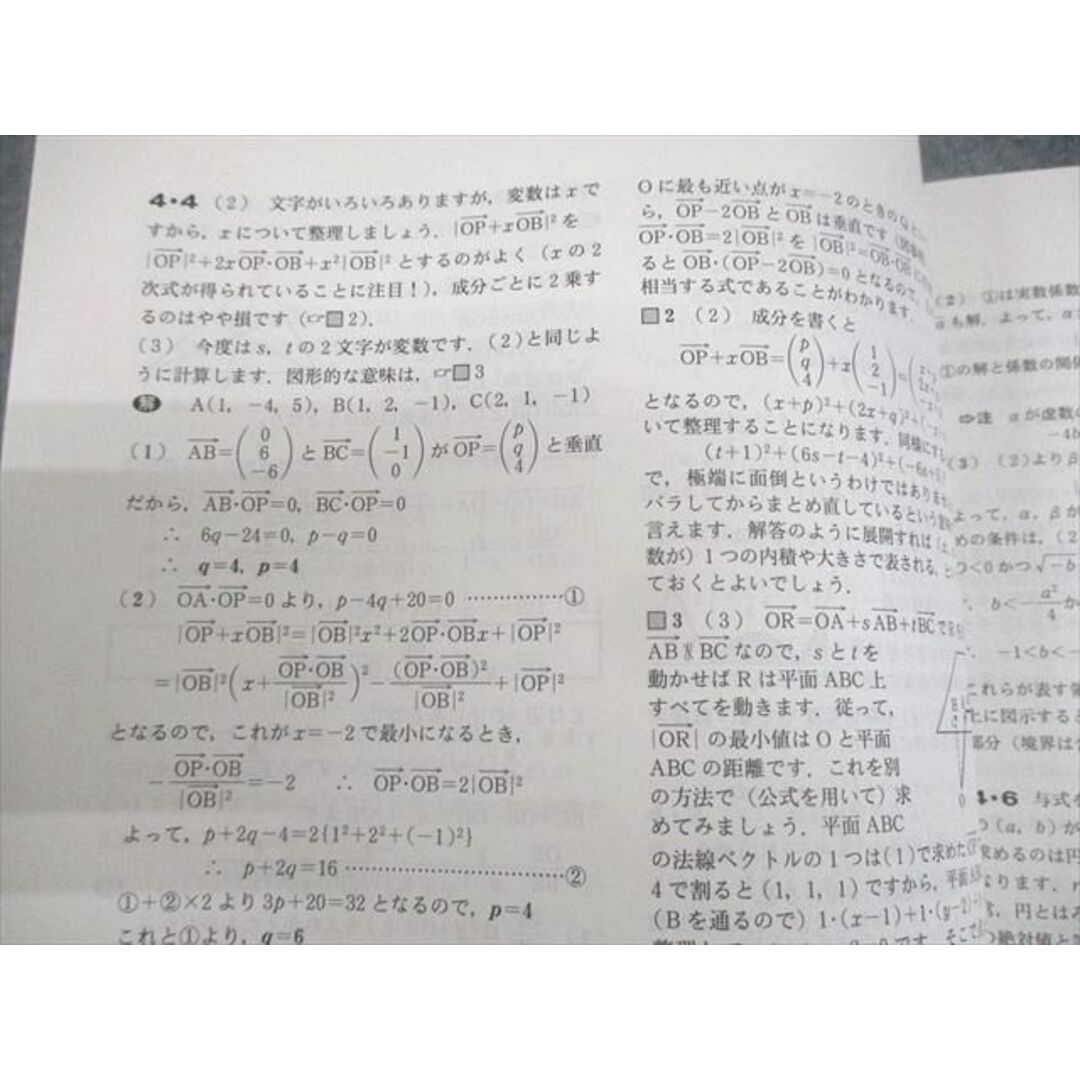 4・4 (2) 文字がいろいろありますが，変数はxで
すから，xについて整理しましょう．|OP+xOB|²を
|OP|²+2xOP·OB+x²|OB|²とするのがよく（xの2
次式が得られていることに注目！），成分ごとに2乗す
るのはやや損です（☞■2）．
(3) 今度はs，tの2文字が変数です．(2)と同じよ
うに計算します．図形的な意味は，☞■3
解 A(1, -4, 5), B(1, 2, -1), C(2, 1, -1)
(1) AB=(0 6 -6)とBC=(1 -1 0)がOP=(p q 4)と垂直
だから，AB·OP=0, BC·OP=0
∴ 6q-24=0, p-q=0
∴ q=4, p=4
(2) OA·OP=0より，p-4q+20=0 ……………①
|OP+xOB|²=|OB|²x²+2OP·OBx+|OP|²
=|OB|²(x+OP·OB/|OB|²)²-(OP·OB)²/|OB|²+|OP|²
となるので，これがx=-2で最小になるとき，
-OP·OB/|OB|²=-2 ∴ OP·OB=2|OB|²
よって，p+2q-4=2{1²+2²+(-1)²}
∴ p+2q=16 ……………………………②
①+②×2より3p+20=32となるので，p=4
これと①より，q=6
Oに最も近い点がx=-2のときの
ら，OP-2OBとOBは垂直です
OP·OB=2|OB|²を|OB|²=OB·OB
るとOB·(OP-2OB)=0となるので，
相当する式であることがわかります．
■2 (2) 成分を書くと
OP+xOB=(p q 4)+x(1 2 -1)=
となるので，(x+p)²+(2x+q)²+
いて整理することになります．同様に
(t+1)²+(6s-t-4)²+
で，極端に面倒というわけではあり
バラしてからまとめ直しているという
言えます．解答のように展開すれば
数が）1つの内積や大きさで表される，と
ておくとよいでしょう．
■3 (3) OR=OA+sAB+tBCで
AB∦BCなので，sとtを
動かせばRは平面ABC上
すべてを動きます．従って，
|OR|の最小値はOと平面
ABCの距離です．これを別
の方法で（公式を用いて）求
めてみましょう．平面ABC
の法線ベクトルの1つは(1)で求めた
4で割ると(1, 1, 1)ですから，平面
(Bを通るので) 1·(x-1)+1·(y-2)
(2) ①は実数係数
αも解．よって，
①の解と係数の関係
⇨注 αが虚数の
-4b
(3) (2)よりβ
よって，α，βが
めの条件は，(2
<0かつ√-b
∴ b<-a²/4か
∴ -1<b<-
これらが表す領
に図示すると
部分（境界は
4・6 与式を
(a, b)が
求めるのは円
なります．
円とは
絶対値と